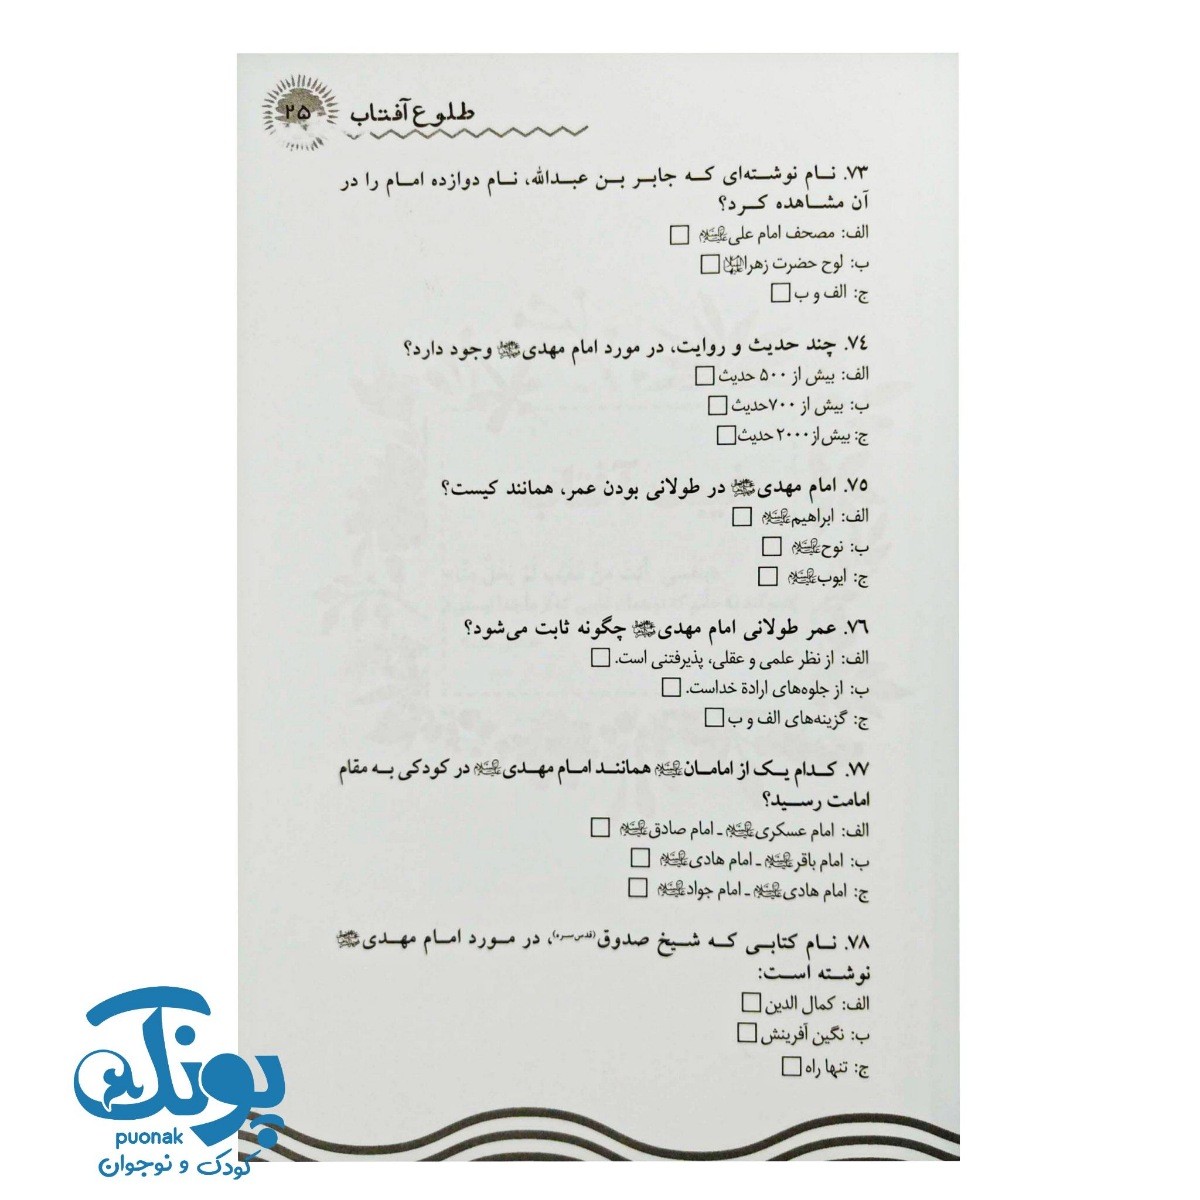 طلوع آفتاب ۲۵
۷۳. نام نوشته‌ای که جابر بن عبدالله، نام دوازده امام را در
آن مشاهده کرد؟
الف: مصحف امام علی علیه‌السلام
ب: لوح حضرت زهرا
ج: الف و ب
۷۴. چند حدیث و روایت، در مورد امام مهدی وجود دارد؟
الف: بیش از ۵۰۰ حدیث
ب: بیش از ۷۰۰حدیث
ج: بیش از ۲۰۰۰ حدیث
۷۵. امام مهدی در طولانی بودن عمر، همانند کیست؟
الف: ابراهیم علیه‌السلام
ب: نوح علیه‌السلام
ج: ایوب علیه‌السلام
۷۶. عمر طولانی امام مهدی چگونه ثابت می‌شود؟
الف: از نظر علمی و عقلی، پذیرفتنی است.
ب: از جلوه‌های ارادة خداست.
ج: گزینه‌های الف و ب
۷۷. کدام یک از امامان علیه‌السلام همانند امام مهدی علیه‌السلام در کودکی به مقام
امامت رسید؟
الف: امام عسکری علیه‌السلام ـ امام صادق علیه‌السلام
ب: امام باقر علیه‌السلام ـ امام هادی علیه‌السلام
ج: امام هادی علیه‌السلام ـ امام جواد علیه‌السلام
۷۸. نام کتابی که شیخ صدوق (قدس‌سره)، در مورد امام مهدی
نوشته است:
الف: کمال الدین
ب: نگین آفرینش
ج: تنها راه
پونک
puonak
کودک و نوجوان